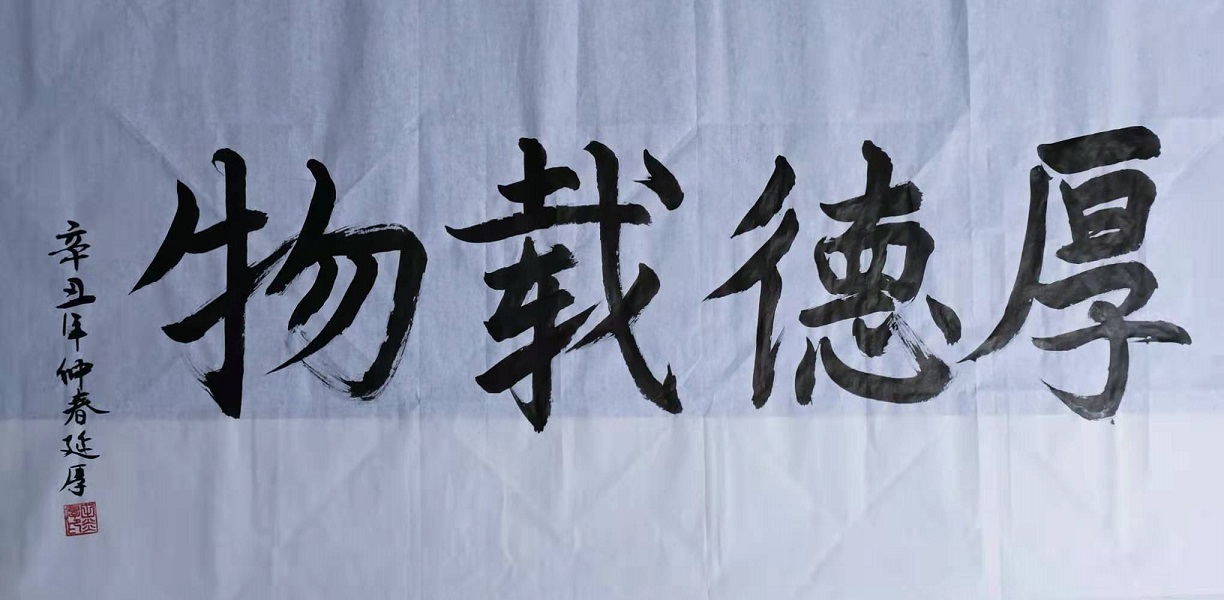 厚德载物
辛丑年仲春延厚